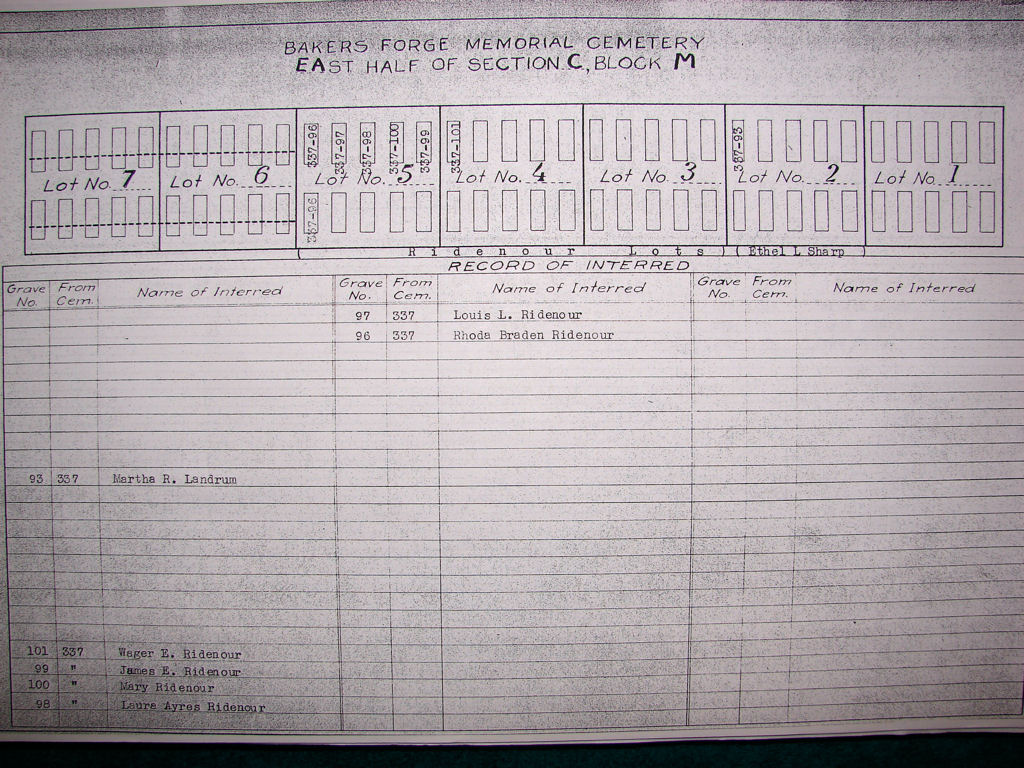 BAKERS FORGE MEMORIAL CEMETERY
EAST HALF OF SECTION C, BLOCK M
337-96 337-97 337-98 337-100 337-99 337-101 337-93
Lot No. 7 Lot No. 6 Lot No. 5 Lot No. 4 Lot No. 3 Lot No. 2 Lot No. 1
337-96
( Ridenour Lots ) ( Ethel L Sharp )
RECORD OF INTERRED
Grave No. From Cem. Name of Interred Grave No. From Cem. Name of Interred Grave No. From Cem. Name of Interred
97 337 Louis L. Ridenour
96 337 Rhoda Braden Ridenour
93 337 Martha R. Landrum
101 337 Wager E. Ridenour
99 " James E. Ridenour
100 " Mary Ridenour
98 " Laura Ayres Ridenour